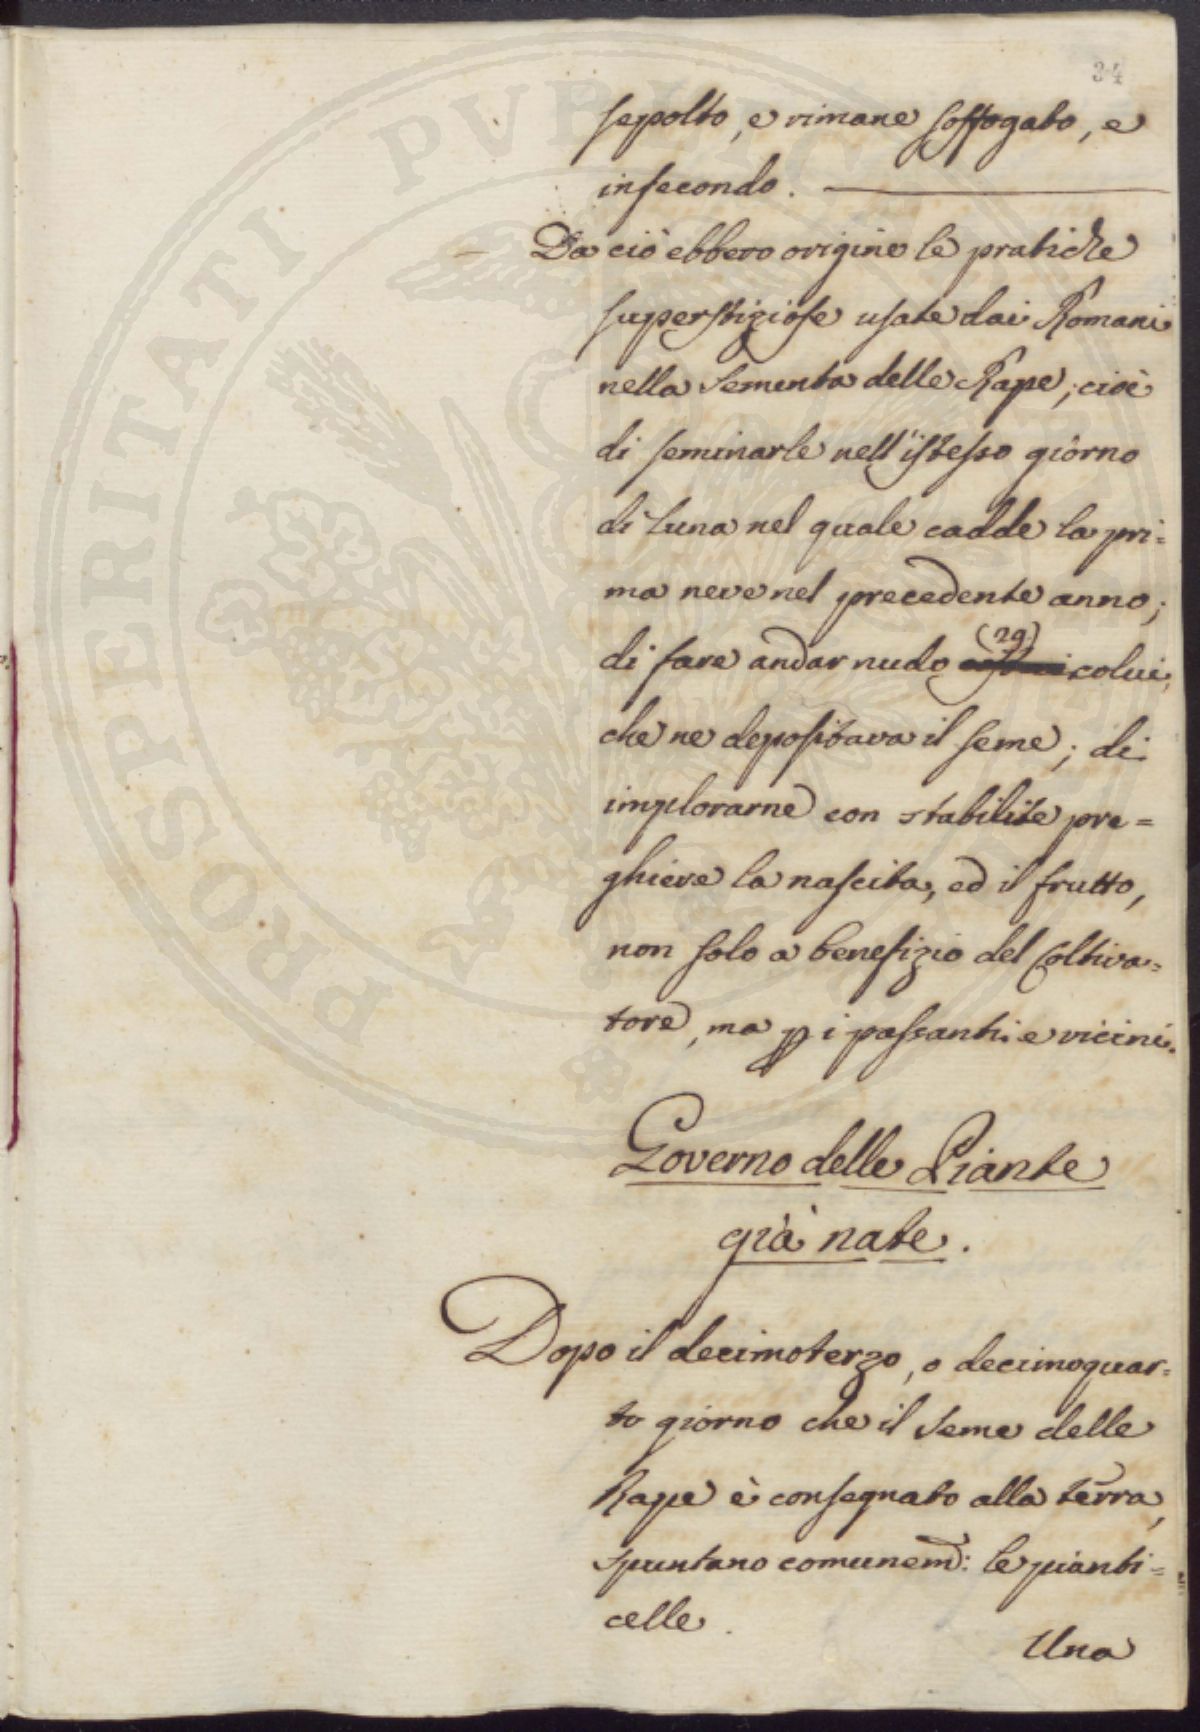 34
sepolto, e rimane soffogato, e
insecondo.
Da ciò ebbero origine le pratiche
superstiziose usate dai Romani
nella sementa delle Rape; cioè
di seminarle nell'istesso giorno
di Luna nel quale cadde la pri=
ma neve nel precedente anno;
di fare andar nudo (29) colui,
che ne depositava il seme; di
implorarne con stabilite pre=
ghiere la nascita, ed il frutto,
non solo a benefizio del Coltiva=
tore, ma p i passanti e vicini.
Governo delle Piante
già nate.
Dopo il decimoterzo, o decimoquar=
to giorno che il seme delle
Rape è consegnato alla terra,
spuntano comunem: le pianti=
celle.
Una
PROSPERITATI PVBLICAE